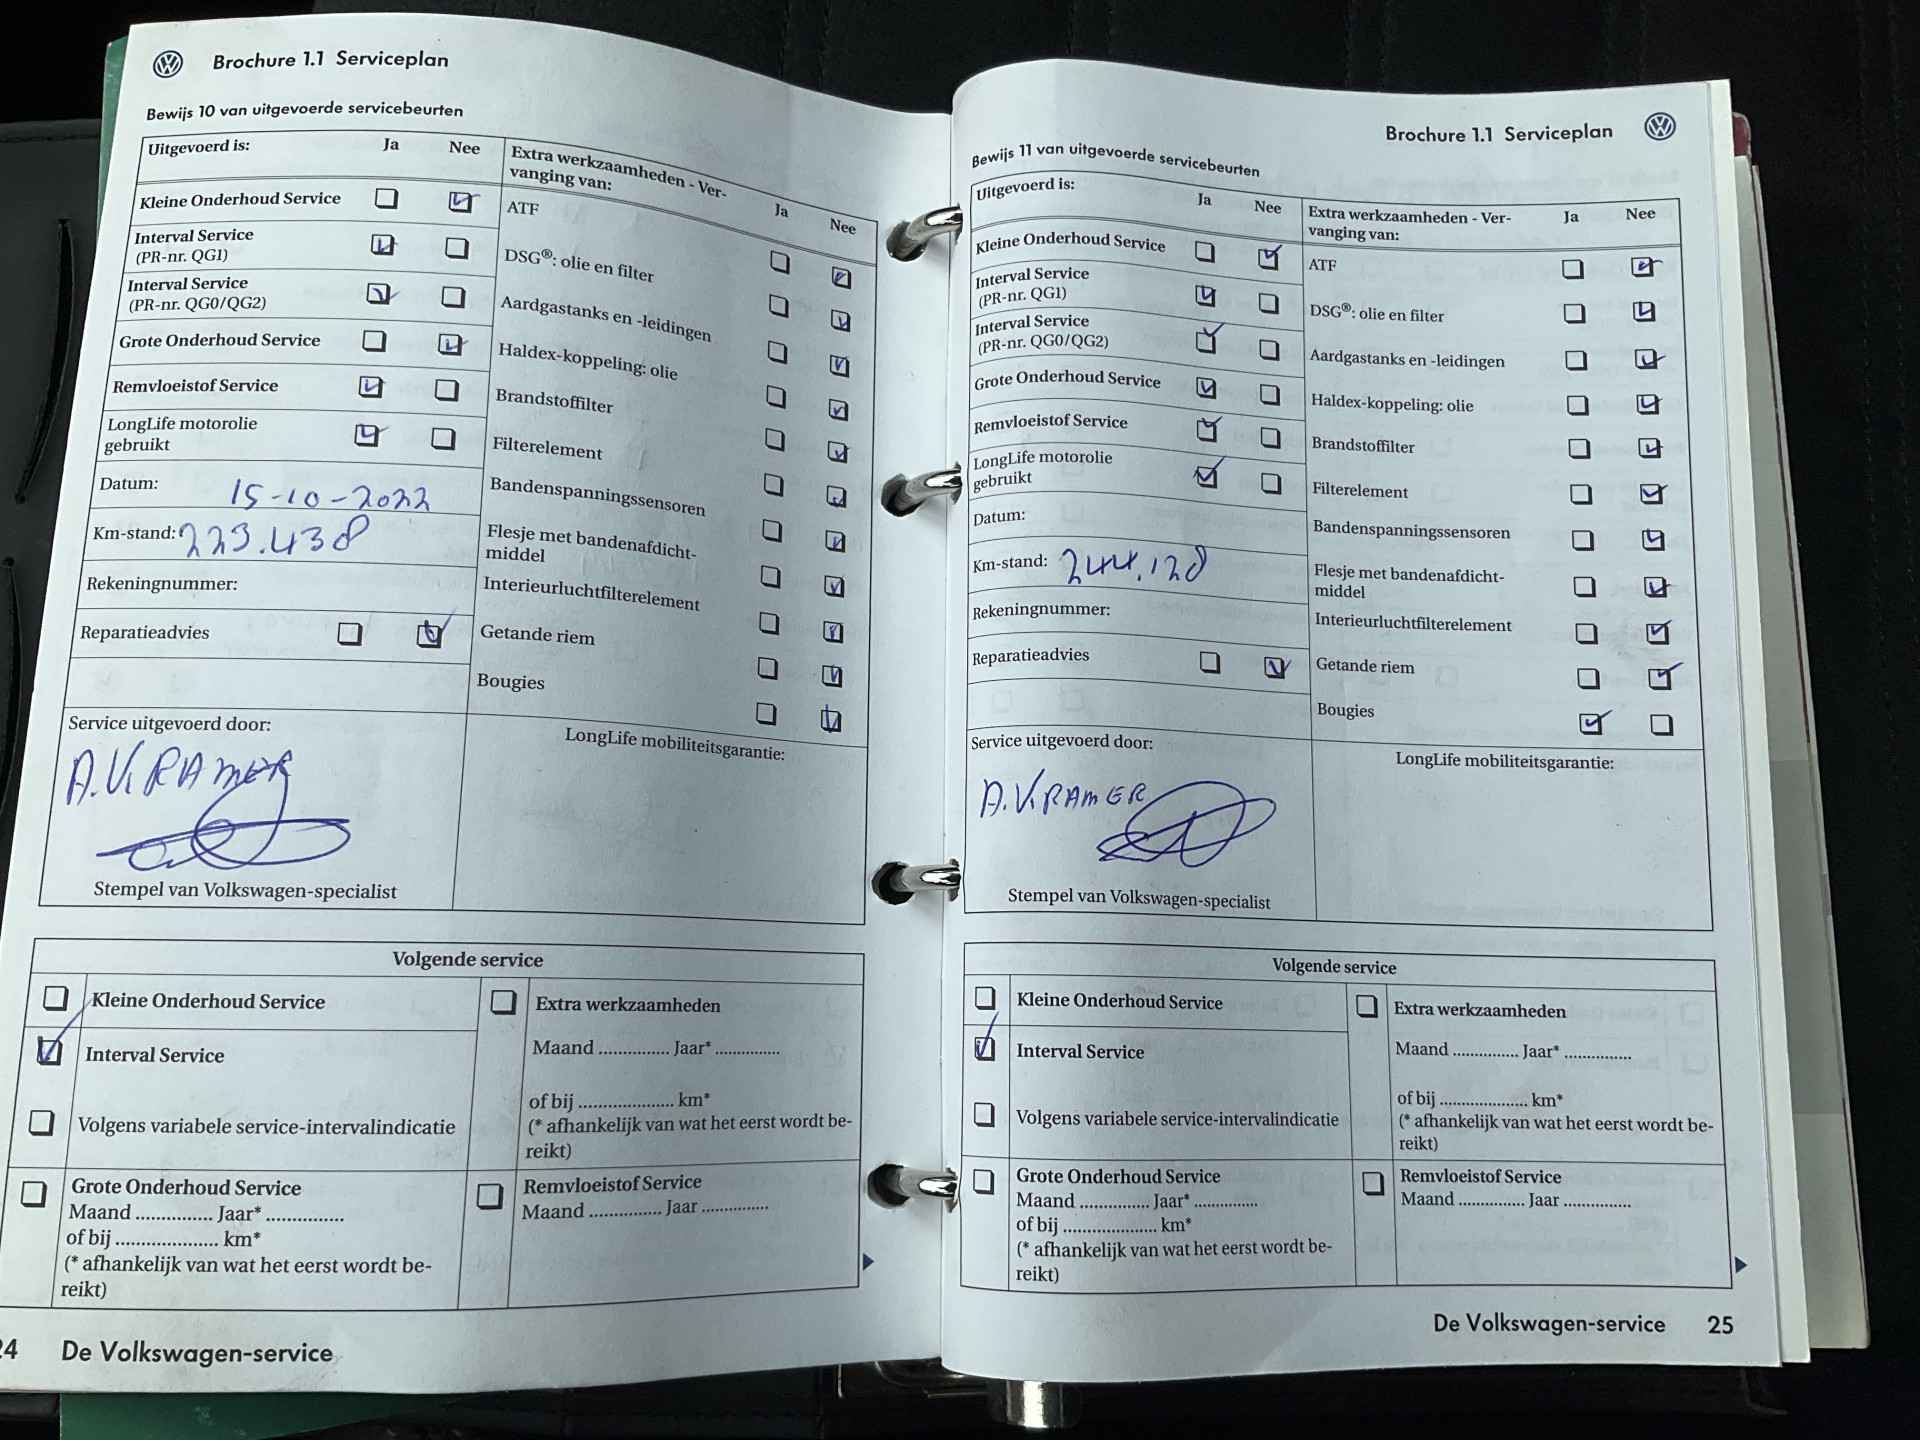 Brochure 1.1 Serviceplan
Bewijs 10 van uitgevoerde servicebeurten
Uitgevoerd is: Ja Nee
Kleine Onderhoud Service
Interval Service
(PR-nr. QG1)
Interval Service
(PR-nr. QG0/QG2)
Grote Onderhoud Service
Remvloeistof Service
LongLife motorolie
gebruikt
Datum: 15-10-2022
Km-stand: 223.438
Rekeningnummer:
Reparatieadvies
Extra werkzaamheden - Ver-
vanging van: Ja Nee
ATF
DSG®: olie en filter
Aardgastanks en -leidingen
Haldex-koppeling: olie
Brandstoffilter
Filterelement
Bandenspanningssensoren
Flesje met bandenafdicht-
middel
Interieurluchtfilterelement
Getande riem
Bougies
Service uitgevoerd door:
A.V.KRAMER
Stempel van Volkswagen-specialist
LongLife mobiliteitsgarantie:
Volgende service
Kleine Onderhoud Service
Interval Service
Volgens variabele service-intervalindicatie
Grote Onderhoud Service
Maand .............. Jaar* ..............
of bij ................... km*
(* afhankelijk van wat het eerst wordt be-
reikt)
Extra werkzaamheden
Maand ............. Jaar* ............
of bij ................... km*
(* afhankelijk van wat het eerst wordt be-
reikt)
Remvloeistof Service
Maand ............. Jaar .............
24 De Volkswagen-service
Brochure 1.1 Serviceplan
Bewijs 11 van uitgevoerde servicebeurten
Uitgevoerd is: Ja Nee
Kleine Onderhoud Service
Interval Service
(PR-nr. QG1)
Interval Service
(PR-nr. QG0/QG2)
Grote Onderhoud Service
Remvloeistof Service
LongLife motorolie
gebruikt
Datum:
Km-stand: 244.128
Rekeningnummer:
Reparatieadvies
Extra werkzaamheden - Ver-
vanging van: Ja Nee
ATF
DSG®: olie en filter
Aardgastanks en -leidingen
Haldex-koppeling: olie
Brandstoffilter
Filterelement
Bandenspanningssensoren
Flesje met bandenafdicht-
middel
Interieurluchtfilterelement
Getande riem
Bougies
Service uitgevoerd door:
A.V.KRAMER
Stempel van Volkswagen-specialist
LongLife mobiliteitsgarantie:
Volgende service
Kleine Onderhoud Service
Interval Service
Volgens variabele service-intervalindicatie
Grote Onderhoud Service
Maand ............. Jaar* ............
of bij ................... km*
(* afhankelijk van wat het eerst wordt be-
reikt)
Extra werkzaamheden
Maand ............. Jaar* .............
of bij .................. km*
(* afhankelijk van wat het eerst wordt be-
reikt)
Remvloeistof Service
Maand ............. Jaar .............
De Volkswagen-service 25